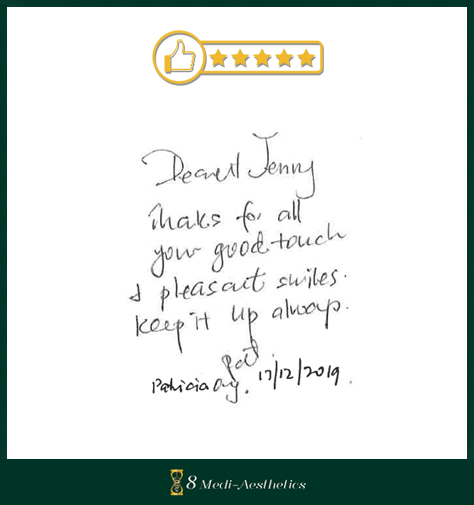 Dearest Jenny
Thaks for all
your good touch
& pleasant smiles.
Keep it up always.
Pat.
Patricia Ong. 17/12/2019.
8 Medi-Aesthetics